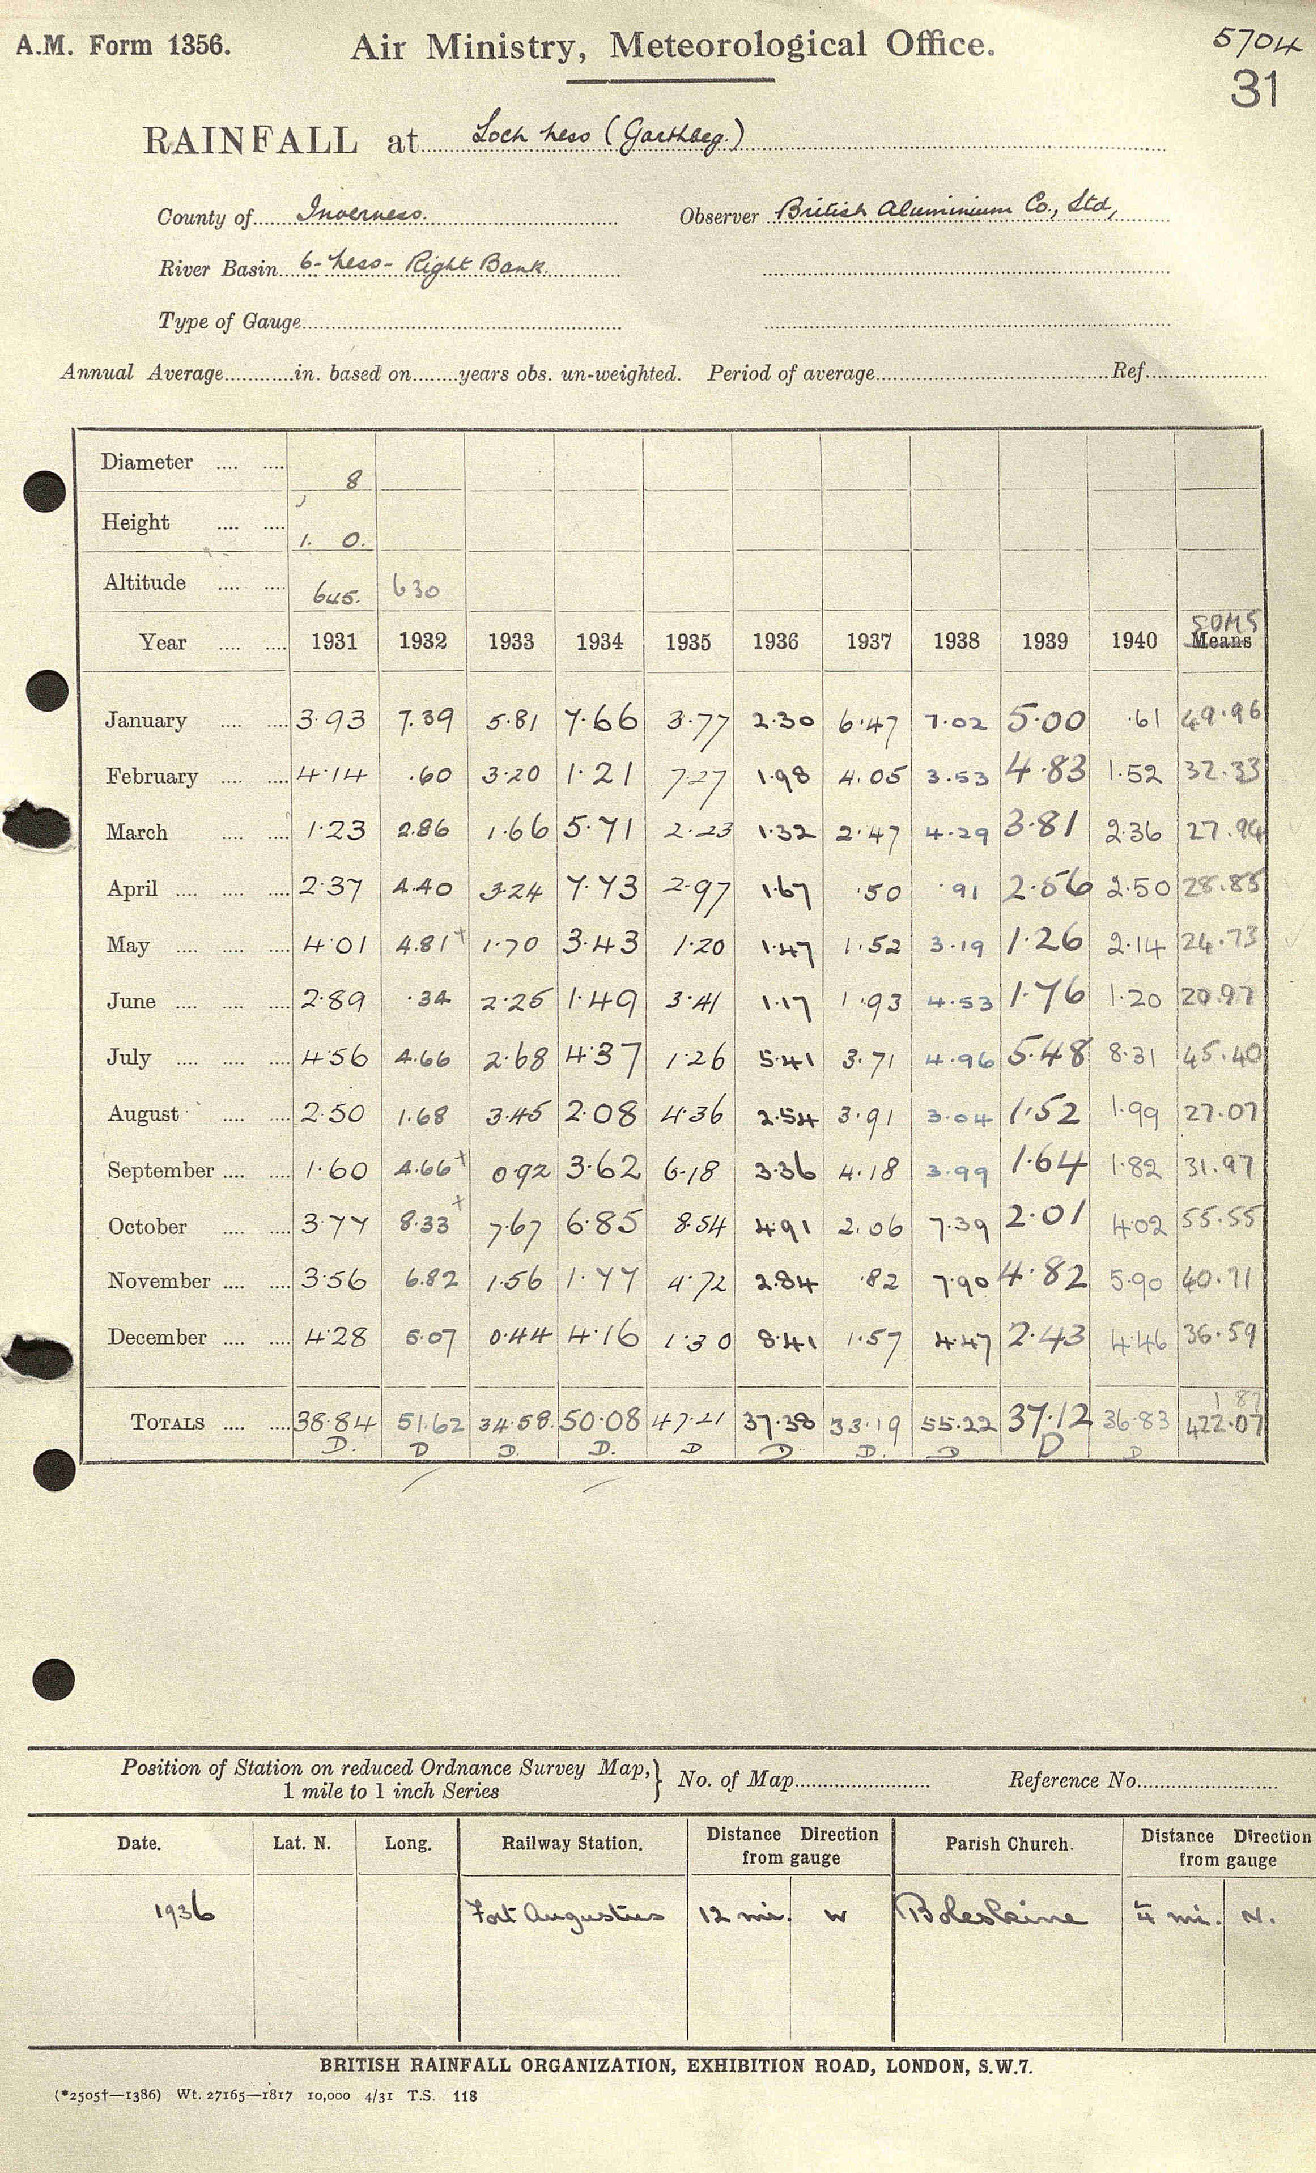 A.M. Form 1356.
Air Ministry, Meteorological Office.
5704
31
RAINFALL at Loch Ness (Garthbeg.)
County of Inverness. Observer British Aluminium Co., Ltd,
River Basin 6 - Ness - Right Bank
Type of Gauge
Annual Average in. based on years obs. un-weighted. Period of average Ref.
Diameter 8
Height 1. 0.
Altitude 645. 630
SOMS
Year 1931 1932 1933 1934 1935 1936 1937 1938 1939 1940 Means
January 3.93 7.39 5.81 7.66 3.77 2.30 6.47 7.02 5.00 .61 49.96
February 4.14 .60 3.20 1.21 7.27 1.98 4.05 3.53 4.83 1.52 32.33
March 1.23 2.86 1.66 5.71 2.23 1.32 2.47 4.29 3.81 2.36 27.94
April 2.37 4.40 3.24 7.73 2.97 1.67 .50 .91 2.56 2.50 28.85
May 4.01 4.81+ 1.70 3.43 1.20 1.47 1.52 3.19 1.26 2.14 24.73
June 2.89 .34 2.25 1.49 3.41 1.17 1.93 4.53 1.76 1.20 20.97
July 4.56 4.66 2.68 4.37 1.26 5.41 3.71 4.96 5.48 8.31 45.40
August 2.50 1.68 3.45 2.08 4.36 2.54 3.91 3.04 1.52 1.99 27.07
September 1.60 4.66+ 0.92 3.62 6.18 3.36 4.18 3.99 1.64 1.82 31.97
October 3.77 8.33+ 7.67 6.85 8.54 4.91 2.06 7.39 2.01 4.02 55.55
November 3.56 6.82 1.56 1.77 4.72 2.84 .82 7.90 4.82 5.90 40.71
December 4.28 5.07 0.44 4.16 1.30 8.41 1.57 4.47 2.43 4.46 36.59
1 87
TOTALS 38.84 51.62 34.58 50.08 47.21 37.38 33.19 55.22 37.12 36.83 422.07
D. D D. D. D D D. D D D
Position of Station on reduced Ordnance Survey Map,
1 mile to 1 inch Series
No. of Map Reference No.
Date. Lat. N. Long. Railway Station. Distance Direction from gauge Parish Church. Distance Direction from gauge
1936 Fort Augustus 12 mi. W Boleskine 4 mi. N.
BRITISH RAINFALL ORGANIZATION, EXHIBITION ROAD, LONDON, S.W.7.
(*2505†—1386) Wt. 27165—1817 10,000 4/31 T.S. 118